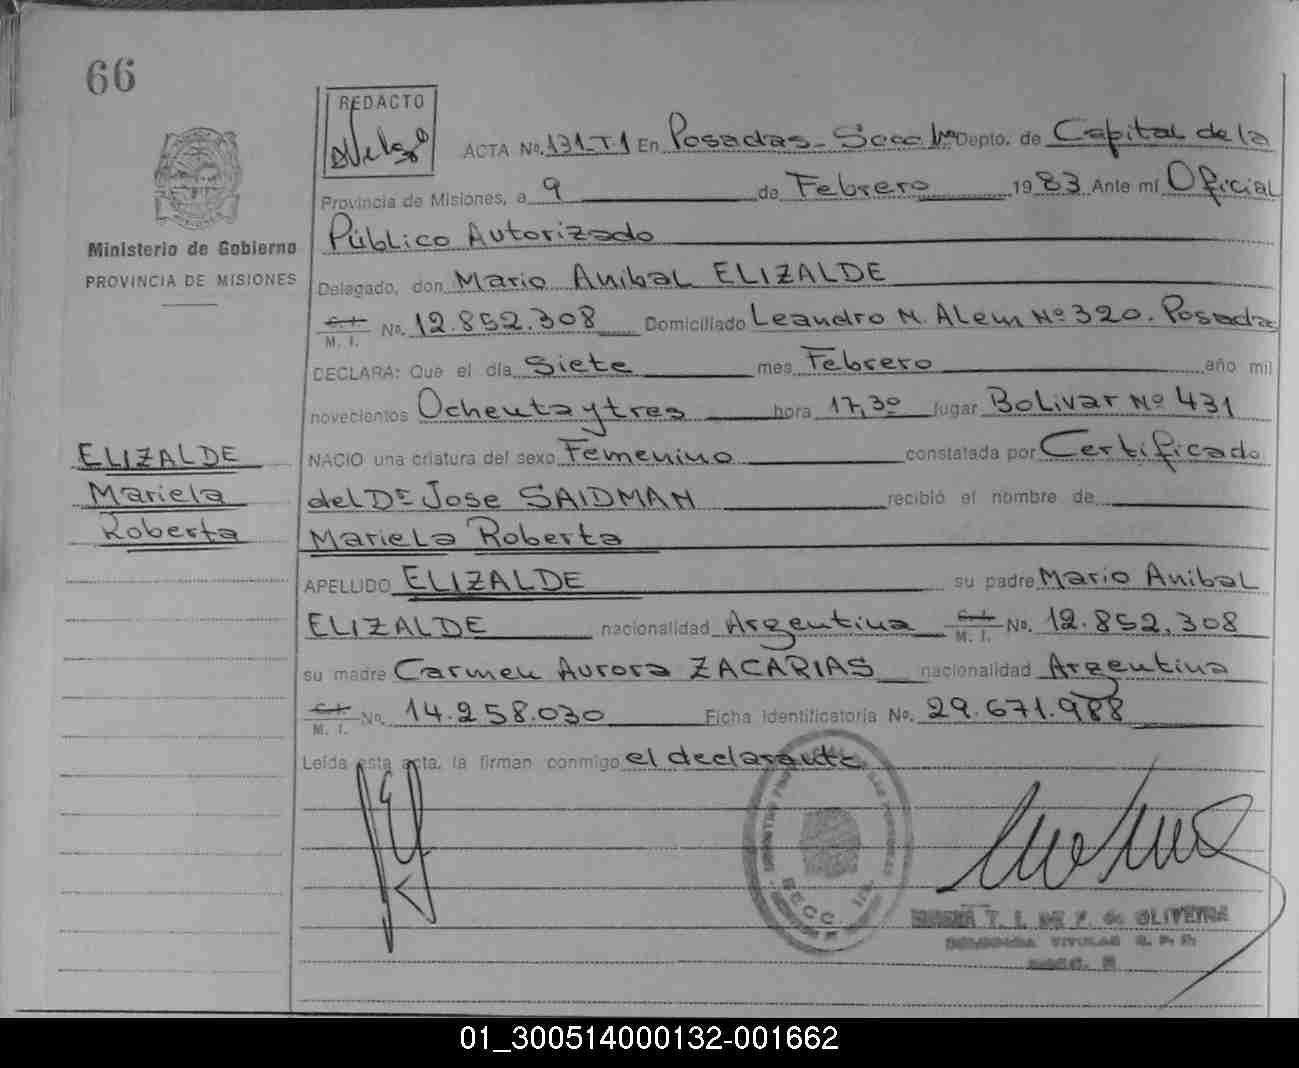 66
REDACTO
ACTA No. 131-T1 En Posadas - Secc 1ra Depto. de Capital de la
Provincia de Misiones, a 9 de Febrero 1983 Ante mí Oficial
Ministerio de Gobierno
PROVINCIA DE MISIONES
Público Autorizado
Delegado, don Mario Anibal ELIZALDE
C.I. M. I. No. 12.852.308 Domiciliado Leandro N. Alem Nº 320. Posadas
DECLARA: Que el día Siete mes Febrero año mil
novecientos Ochenta y tres hora 17,30 lugar Bolivar Nº 431
ELIZALDE
Mariela
Roberta
NACIO una criatura del sexo Femenino constatada por Certificado
del Dr Jose SAIDMAN recibió el nombre de
Mariela Roberta
APELLIDO ELIZALDE su padre Mario Anibal
ELIZALDE nacionalidad Argentina C.I. M. I. No. 12.852.308
su madre Carmen Aurora ZACARIAS nacionalidad Argentina
C.I. M. I. No. 14.258.030 Ficha Identificatoria No. 29.671.988
Leída esta acta, la firman conmigo el declarante
SECC. 1ra.
T. I. DE F. de OLIVEIRA
TITULAR R. P. P.
SECC.
01_300514000132-001662